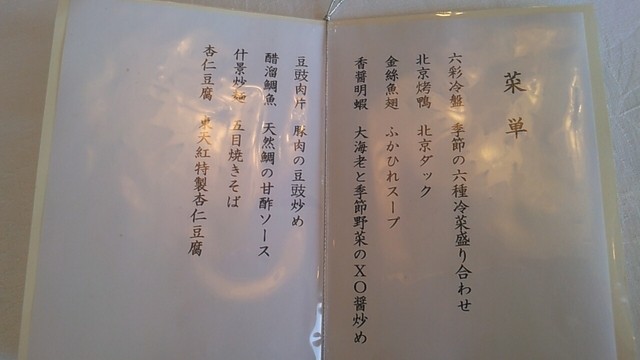 菜単
六彩冷盤 季節の六種冷菜盛り合わせ
北京烤鴨 北京ダック
金絲魚翅 ふかひれスープ
香醤明蝦 大海老と季節野菜のXO醤炒め
豆豉肉片 豚肉の豆豉炒め
醋溜鯛魚 天然鯛の甘酢ソース
什景炒麺 五目焼きそば
杏仁豆腐 東天紅特製杏仁豆腐